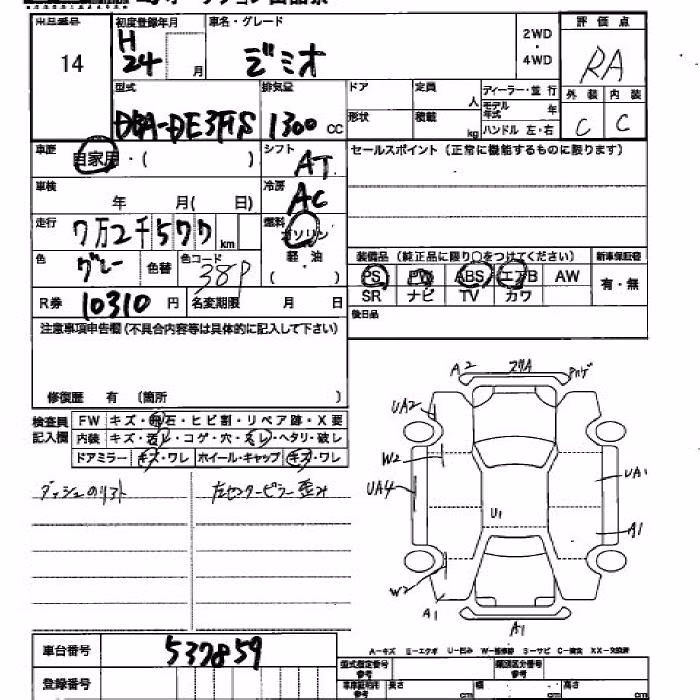 出品番号 初度登録年月 車名・グレード 2WD・4WD 評価点
14 H24 月 デミオ RA
型式 排気量 ドア 定員 人 ディーラー・並行 外装 内装
DBA-DE3FS 1300 cc 形状 積載 kg モデル年式 年 C C
ハンドル 左・右
車歴 自家用・( ) シフト AT セールスポイント(正常に機能するものに限ります)
車検 年 月( 日) 冷房 AC
走行 7万2千577 km 燃料 ガソリン
軽油
( )
色 グレー 色替 色コード 38P
装備品(純正品に限り○をつけてください) 新車保証書
PS PW ABS エアB AW 有・無
SR ナビ TV カワ
R券 10310 円 名変期限 月 日
後日品
注意事項申告欄(不具合内容等は具体的に記入して下さい)
修復歴 有 〔箇所 〕
検査員記入欄 FW キズ・飛石・ヒビ割・リペア跡・X要
内装 キズ・汚レ・コゲ・穴・スレ・ヘタリ・破レ
ドアミラー キズ・ワレ ホイール・キャップ キズ・ワレ
左センターピラー歪み
A2 スリA
UA2
W2
UA4 UA1
U1
A1
W2
A1
A1
A-キズ E-エクボ U-凹み W-補修跡 S-サビ C-腐食 XX-交換済
車台番号 537859
登録番号
型式指定番号 参考 類別区分番号 参考
長さ cm 幅 cm 高さ cm